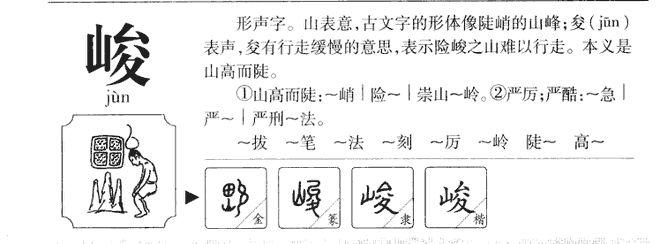 峻
jùn
形声字。山表意,古文字的形体像陡峭的山峰;夋(jūn)
表声,夋有行走缓慢的意思,表示险峻之山难以行走。本义是
山高而陡。
①山高而陡:～峭|险～|崇山～岭。②严厉;严酷:～急|
严～|严刑～法。
～拔 ～笔 ～法 ～刻 ～厉 ～岭 陡～ 高～
金
峻 篆
峻 隶
峻 楷